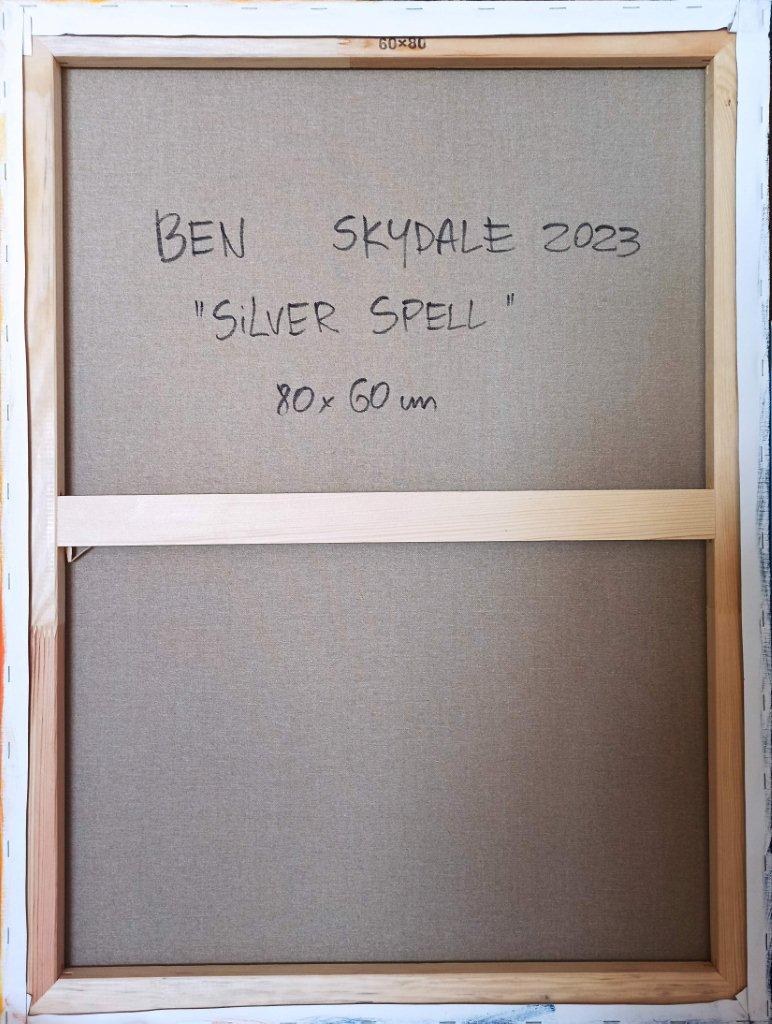 60×80
BEN SKYDALE 2023
"SiLVER SPELL"
80x60 cm